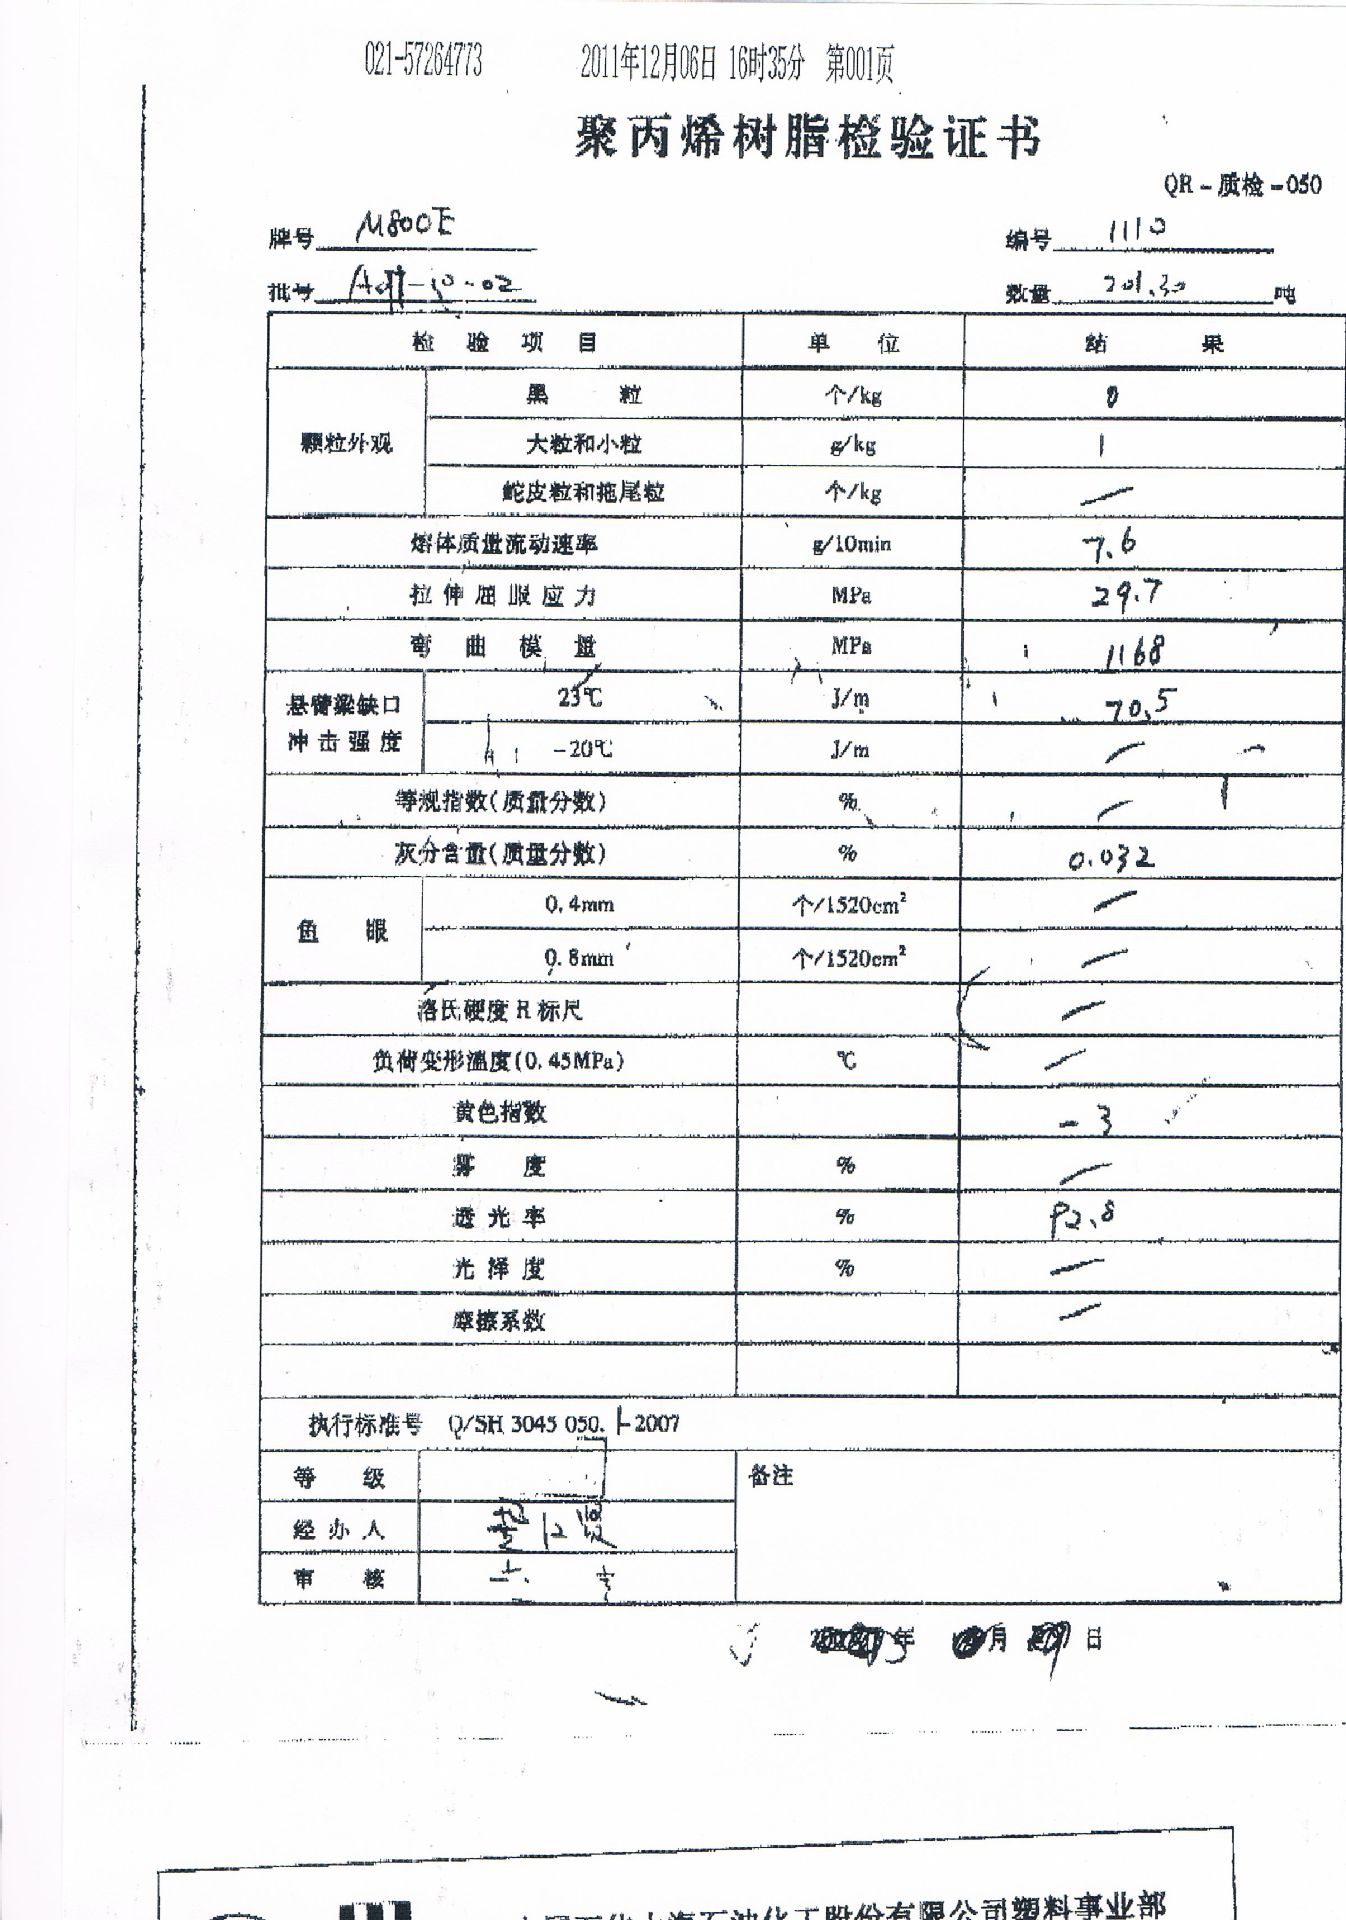 021-57264773 2011年12月06日 16时35分 第001页
聚丙烯树脂检验证书
QR-质检-050
牌号 M800E 编号 1110
批号 数量 201.30 吨
检验项目 单位 结果
颗粒外观 黑粒 个/kg 0
大粒和小粒 g/kg 1
蛇皮粒和拖尾粒 个/kg /
熔体质量流动速率 g/10min 7.6
拉伸屈服应力 MPa 29.7
弯曲模量 MPa 1168
悬臂梁缺口 23℃ J/m 70.5
冲击强度 -20℃ J/m /
等规指数(质量分数) % /
灰分含量(质量分数) % 0.032
鱼眼 0.4mm 个/1520cm² /
0.8mm 个/1520cm² /
洛氏硬度 R 标尺 /
负荷变形温度(0.45MPa) ℃ /
黄色指数 -3
雾度 % /
透光率 % 92.8
光泽度 % /
摩擦系数 /
执行标准号 Q/SH 3045 050.1-2007
等级 备注
经办人
审核
年 月 日
中国石化上海石油化工股份有限公司塑料事业部